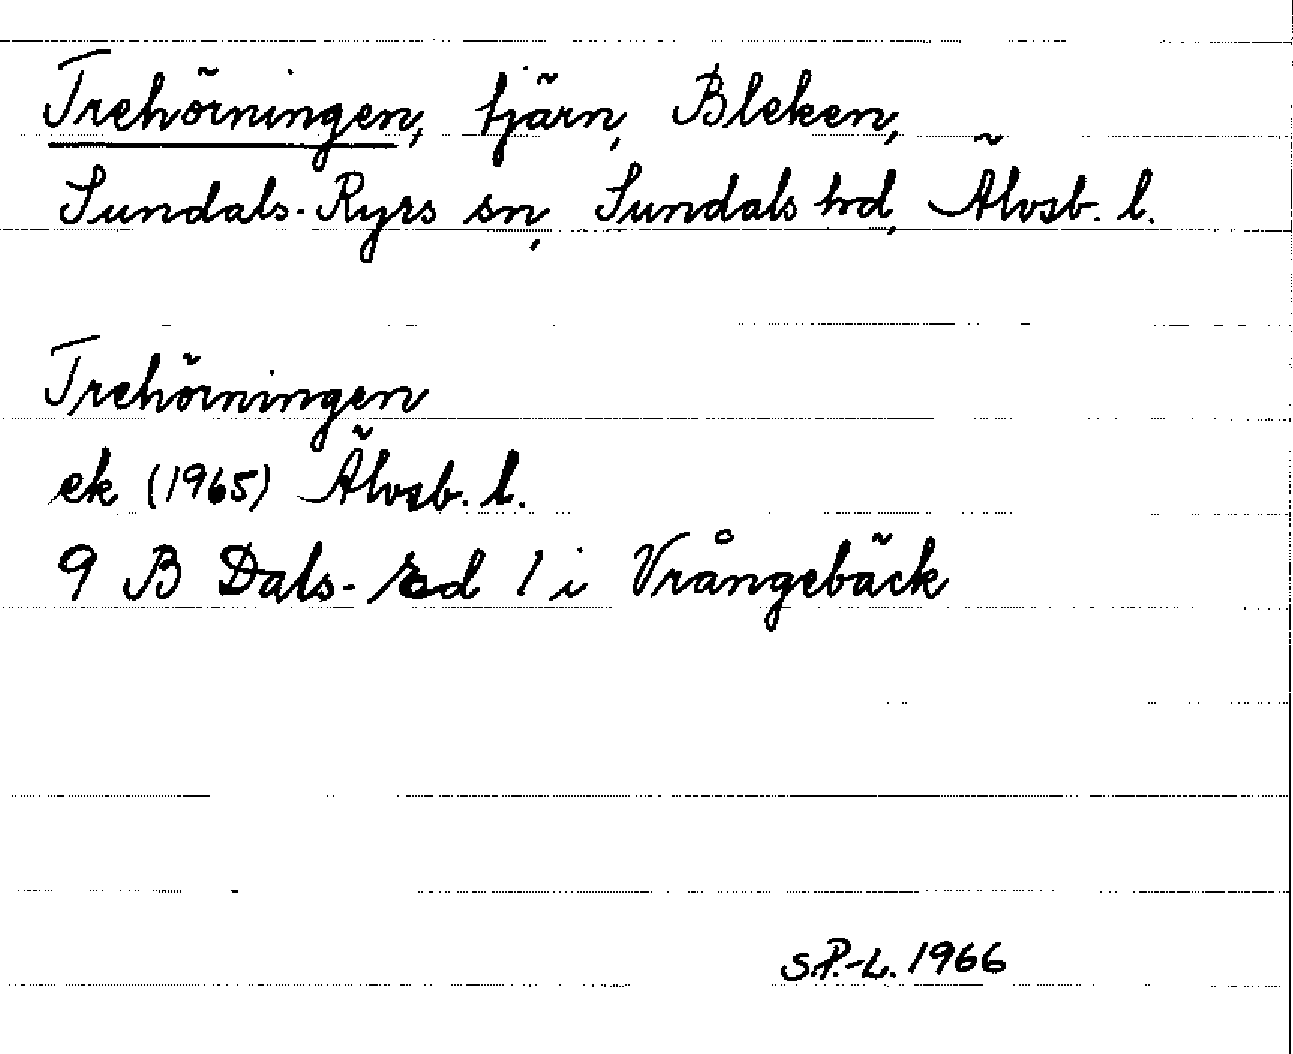 Trehörningen, tjärn, Bleken,
Sundals-Ryrs sn, Sundals hd, Älvsb. l.
Trehörningen
ek (1965) Älvsb. l.
9 B Dals-Ed 1 i Vrångebäck
S.P.-L. 1966